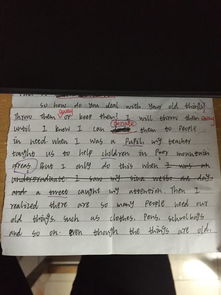 so how do you deal with your old things?
Throw them away or keep them? I will throw them away
until I know I can donate them to people
in need. When I was a Pupil, my teacher
taught us to help children in Poor mountain
areas. But I only do this when I was an
undergraduate I saw my
and a caught my attention. Then I
realized there are so many people need our
old things. such as clothes. Pens. schoolbags
and so on. even though the things are old.